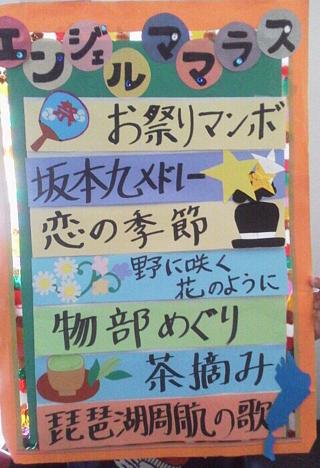 エンジェルママラス
祭
お祭りマンボ
坂本九メドレー
恋の季節
野に咲く
花のように
物部めぐり
茶摘み
琵琶湖周航の歌